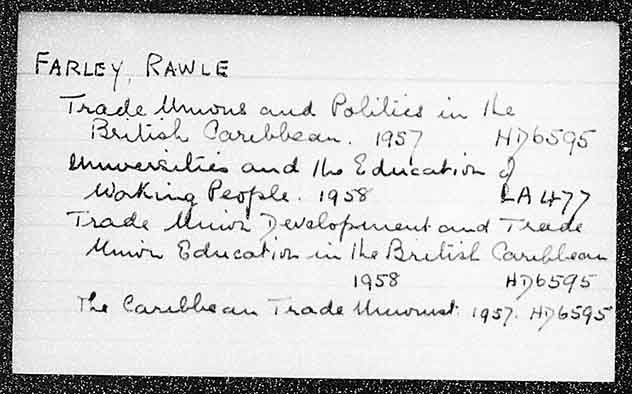 FARLEY, RAWLE
Trade Unions and Politics in the
British Caribbean. 1957 HD6595
Universities and the Education of
Working People. 1958 LA477
Trade Union Development and Trade
Union Education in the British Caribbean
1958 HD6595
The Caribbean Trade Unionist. 1957. HD6595